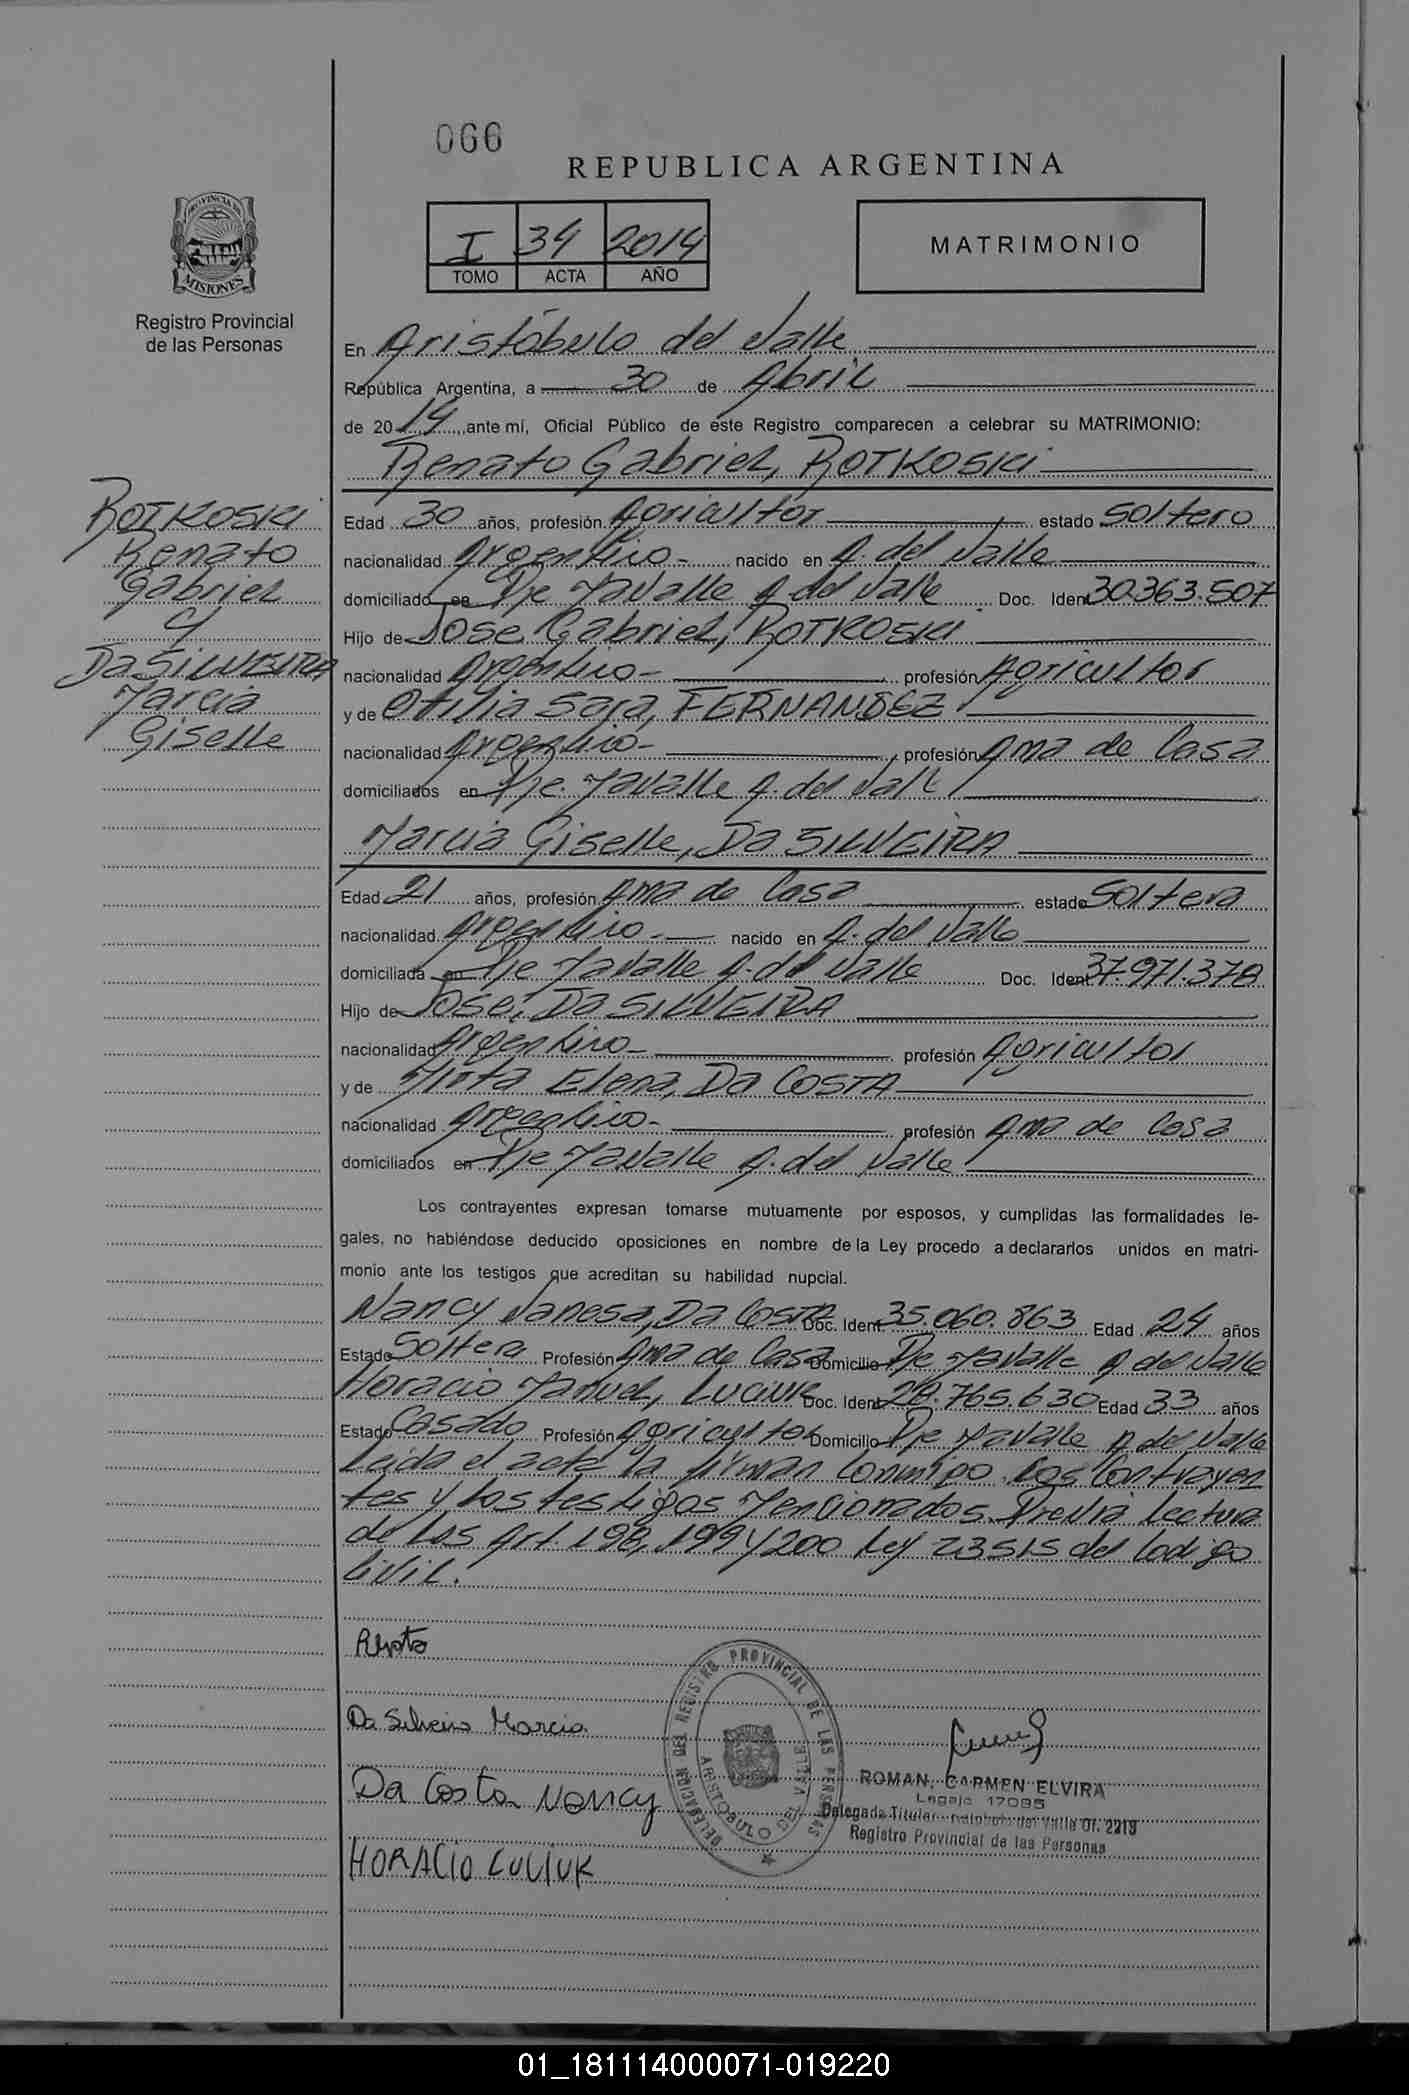 066
REPUBLICA ARGENTINA
I 34 2014
TOMO ACTA AÑO
MATRIMONIO
PROVINCIA DE
MISIONES
Registro Provincial
de las Personas
En Aristóbulo del Valle
República Argentina, a 30 de Abril
de 2014, ante mí, Oficial Público de este Registro comparecen a celebrar su MATRIMONIO:
Renato Gabriel, ROTKOSKI
ROTKOSKI
Renato
Gabriel
y
Da SILVEIRA
Marcia
Giselle
Edad 30 años, profesión Agricultor estado Soltero
nacionalidad Argentino- nacido en A. del Valle
domiciliado en Pje Tavalle A. del Valle Doc. Ident 30.363.507
Hijo de José Gabriel, ROTKOSKI
nacionalidad Argentino- profesión Agricultor
y de Otilia Sara, FERNANDEZ
nacionalidad Argentino- profesión Ama de Casa
domiciliados en Pje. Tavalle A. del Valle
Marcia Giselle, Da SILVEIRA
Edad 21 años, profesión Ama de Casa estado Soltera
nacionalidad Argentino- nacido en A. del Valle
domiciliada en Pje Tavalle A. del Valle Doc. Ident 37.971.378
Hijo de José, Da SILVEIRA
nacionalidad Argentino- profesión Agricultor
y de Mirta Elena, Da COSTA
nacionalidad Argentino- profesión Ama de Casa
domiciliados en Pje Tavalle A. del Valle
Los contrayentes expresan tomarse mutuamente por esposos, y cumplidas las formalidades le-
gales, no habiéndose deducido oposiciones en nombre de la Ley procedo a declararlos unidos en matri-
monio ante los testigos que acreditan su habilidad nupcial.
Nancy Vanesa, Da COSTA Doc. Ident. 35.060.863 Edad 24 años
Estado Soltera Profesión Ama de Casa Domicilio Pje Tavalle A del Valle
Horacio Manuel, LUCIUK Doc. Ident 28.765.630 Edad 33 años
Estado Casado Profesión Agricultor Domicilio Pje Tavalle A del Valle
Leida el acta la firman Conmigo los Contrayen
tes y los testigos Mencionados. Previa Lectura
de los Art. 198, 199 y 200 Ley 23515 del Codigo
Civil.
Renato
Da Silveira Marcia
Da Costa Nancy
HORACIO LUCIUK
DELEGACION DEL REGISTRO PROVINCIAL DE LAS PERSONAS
ARISTOBULO DEL VALLE
ROMAN, CARMEN ELVIRA
Legajo 17095
Delegada Titular Aristobulo del Valle Of. 2213
Registro Provincial de las Personas
01_181114000071-019220